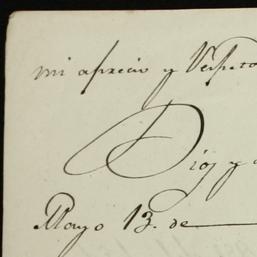 mi aprecio y Respeto
Dios y
Mayo 13. de